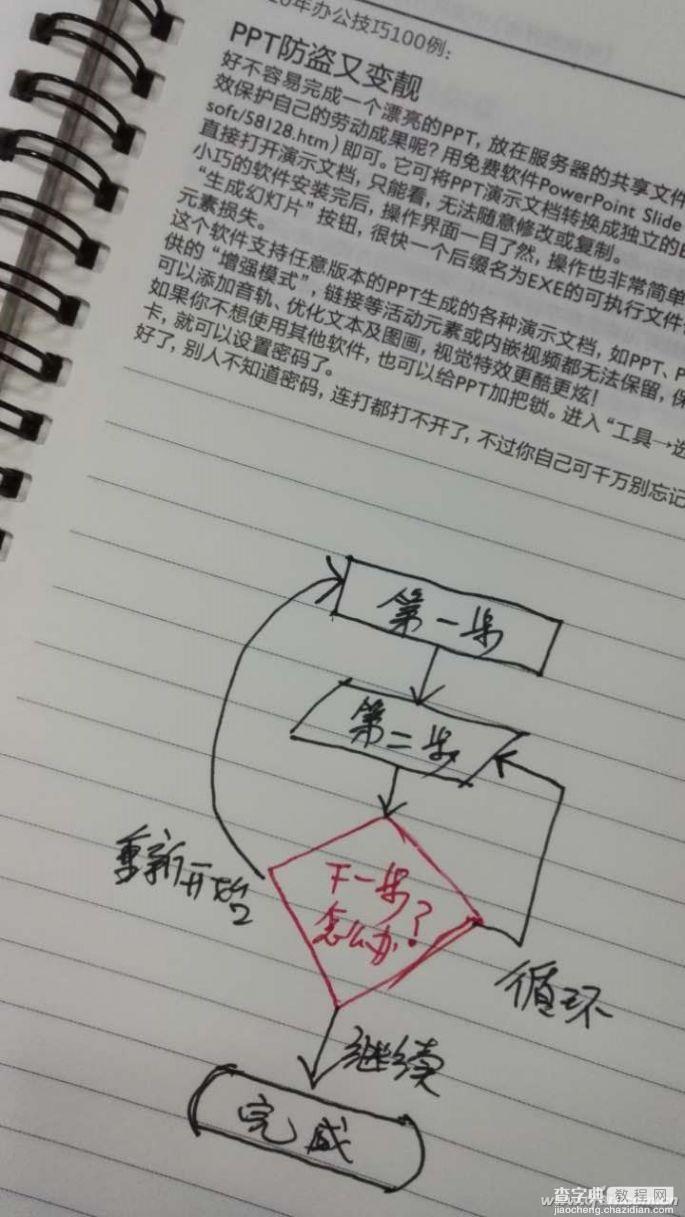 年办公技巧100例：
PPT防盗又变靓
好不容易完成一个漂亮的PPT，放在服务器的共享文件
效保护自己的劳动成果呢？用免费软件PowerPoint Slide
soft/58128.htm）即可。它可将PPT演示文档转换成独立的
直接打开演示文档，只能看，无法随意修改或复制。
小巧的软件安装完后，操作界面一目了然，操作也非常简单
“生成幻灯片”按钮，很快一个后缀名为EXE的可执行文件
元素损失。
这个软件支持任意版本的PPT生成的各种演示文档，如PPT、P
供的“增强模式”，链接等活动元素或内嵌视频都无法保留，保
可以添加音轨、优化文本及图画，视觉特效更酷更炫！
如果你不想使用其他软件，也可以给PPT加把锁。进入“工具→选
卡，就可以设置密码了。
好了，别人不知道密码，连打都打不开了，不过你自己可千万别忘记
第一步
第二步
下一步
怎么办？
重新开始
循环
继续
完成
查字典 教程网
jiaocheng.chazidian.com